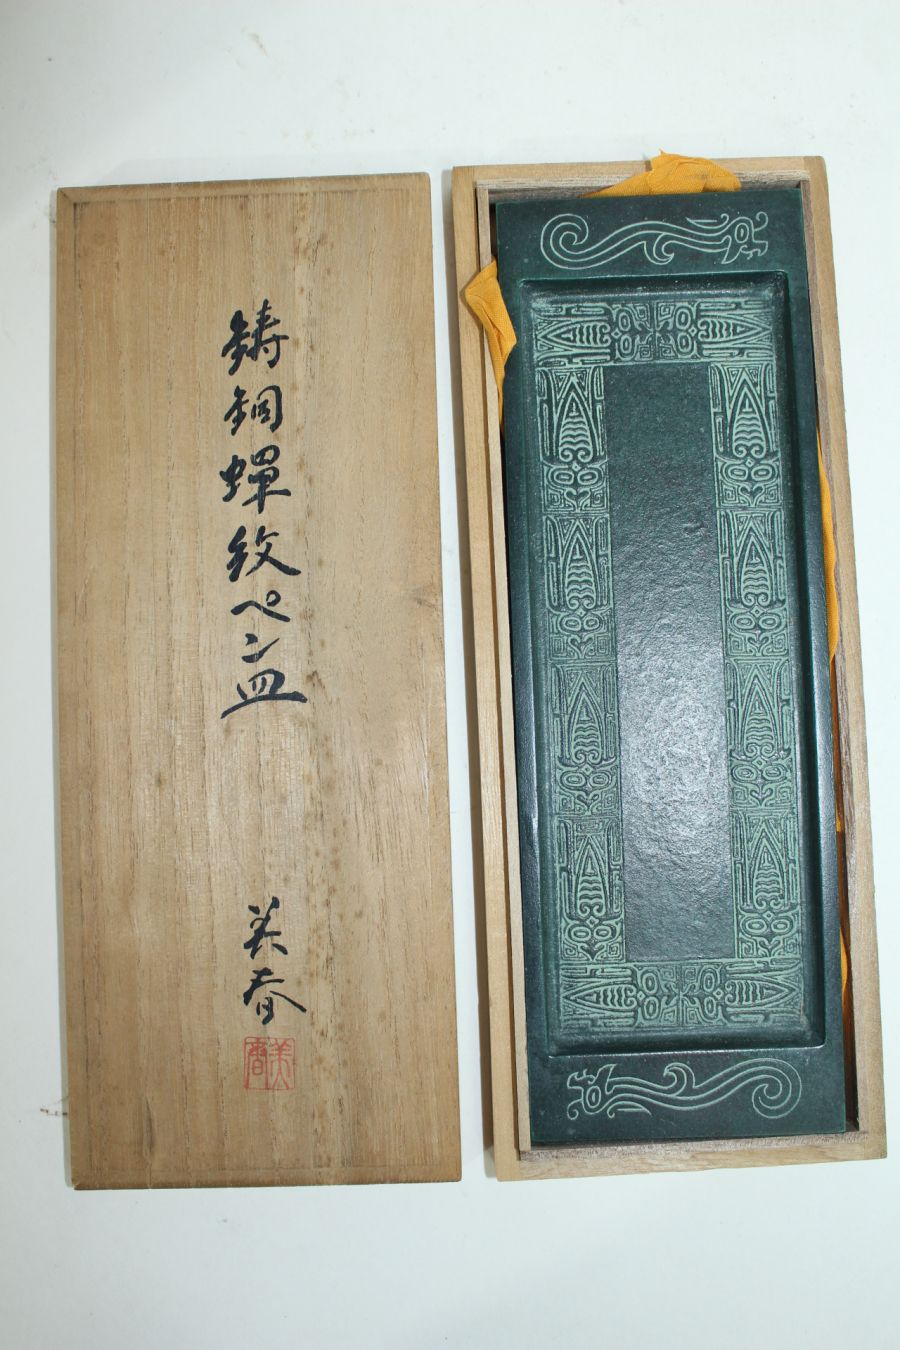 鋳銅蟬紋ペン皿
美春
美春